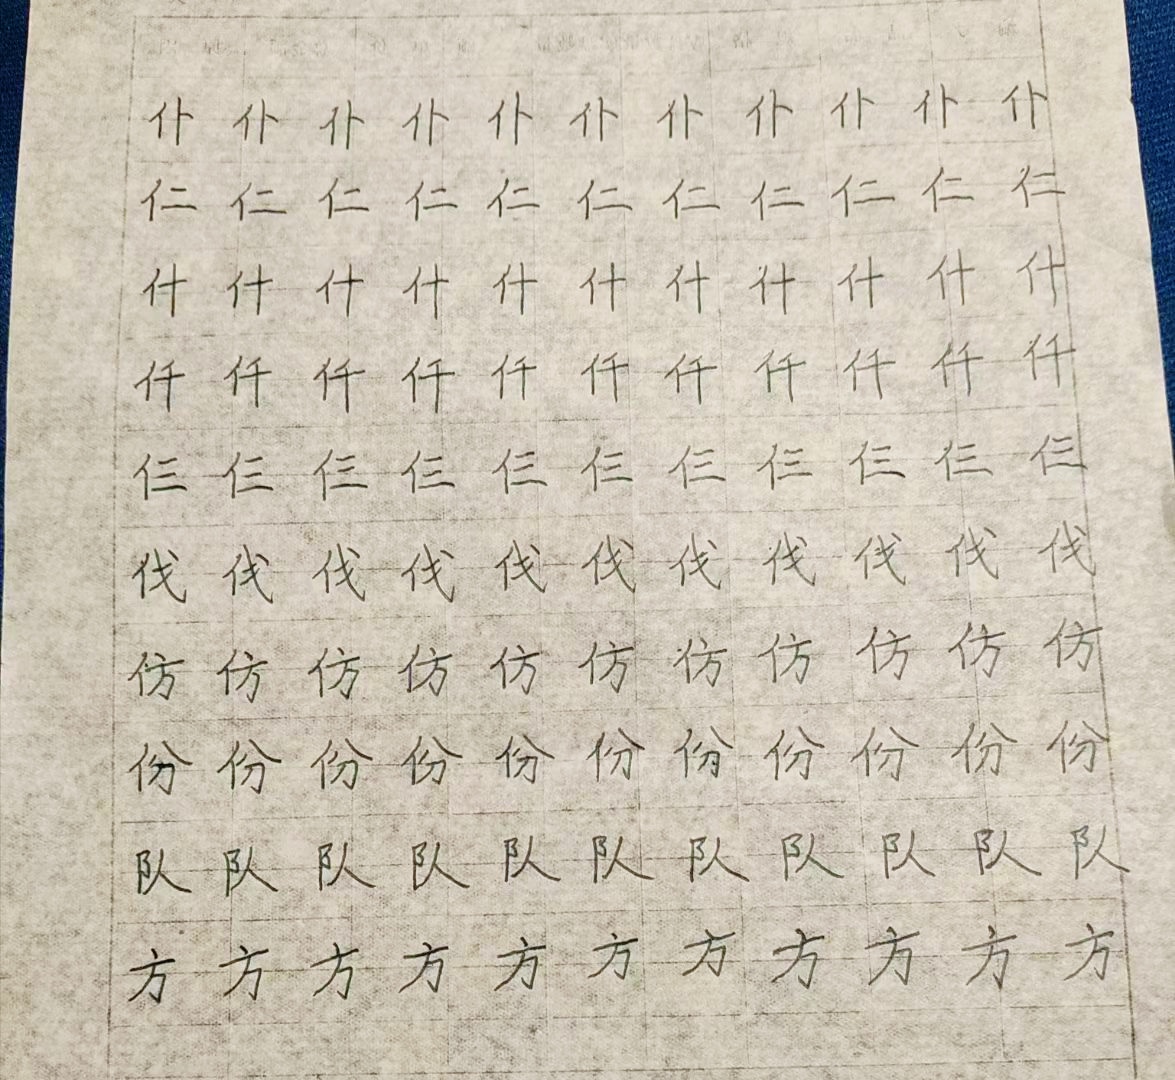 仆 仆 仆 仆 仆 仆 仆 仆 仆 仆 仆
仁 仁 仁 仁 仁 仁 仁 仁 仁 仁 仁
什 什 什 什 什 什 什 什 什 什 什
仟 仟 仟 仟 仟 仟 仟 仟 仟 仟 仟
仨 仨 仨 仨 仨 仨 仨 仨 仨 仨 仨
伐 伐 伐 伐 伐 伐 伐 伐 伐 伐 伐
仿 仿 仿 仿 仿 仿 仿 仿 仿 仿 仿
份 份 份 份 份 份 份 份 份 份 份
队 队 队 队 队 队 队 队 队 队 队
方 方 方 方 方 方 方 方 方 方 方